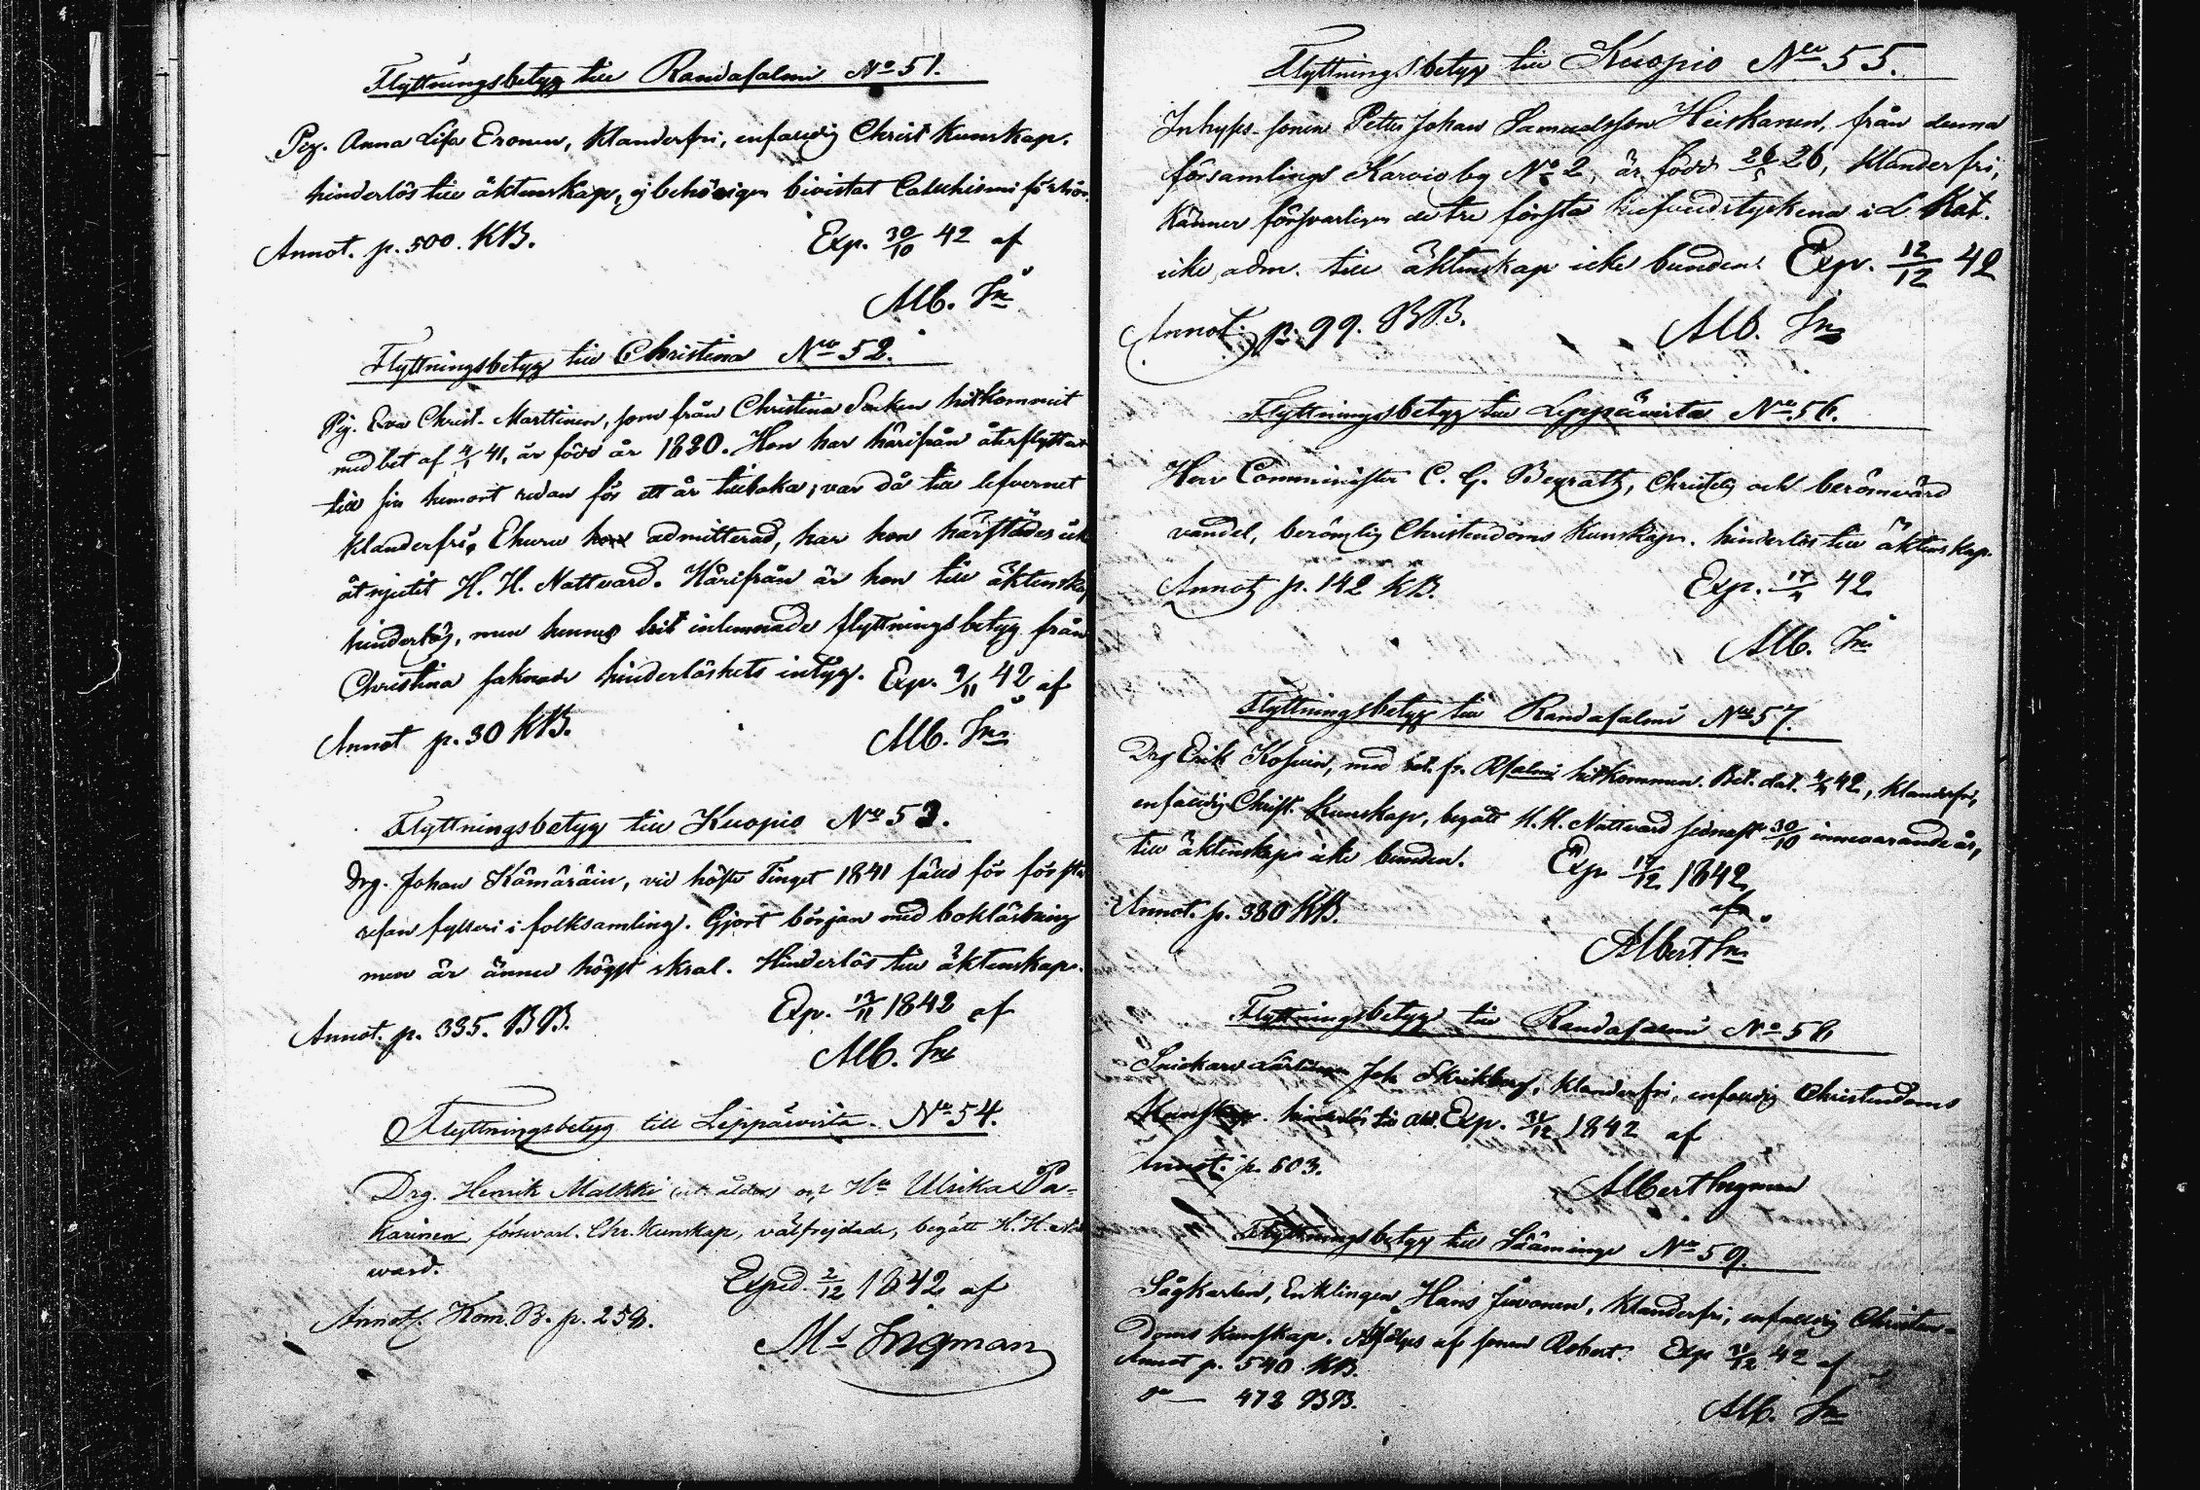 Flyttningsbetyg till Randasalmi No 51.
Pig. Anna Lisa Eronen, klanderfri, enfaldig Christ. kunskap.
hinderlös till äktenskap, ej behörigen bivistat Catechismi förhör.
Annot. p. 500. KB. Exp. 30/10 42 af
Alb. In
Flyttningsbetyg till Christina Nro 52.
Pig. Eva Christ. Marttinen, som från Christina Socken hitkommit
med bet af 4/1 41, är född år 1820. Hon har härifrån återflyttat
till sin hemort redan för ett år tillbaka; var då till lefvernet
klanderfri. Ehuru admitterad, har hon härstädes icke
åtnjutit H. H. Nattvard. Härifrån är hon till äktenskap
hinderlös, men hennes hit inlemnade flyttningsbetyg från
Christina saknade hinderlöshets intyg. Exp. 9/11 42 af
Annot p. 30 KB. Alb. In
Flyttningsbetyg till Kuopio No 53.
Drg. Johan Kämäräin, vid höste Tinget 1841 fälld för första
resan fylleri i folksamling. Gjort början med boklärning
men är ännu högst skral. Hinderlös till äktenskap.
Annot. p. 335. BB. Exp. 13/11 1842 af
Alb. In
Flyttningsbetyg till Leppävirta. No 54.
Drg. Henrik Malkki och Ha Ulrika Pa-
karinen, försvarl. Chr. Kunskap, välfrejdade, begått H. H. Natt
ward.
Annot. Kom. B. p. 259. Exped. 2/12 1842 af
Ms Ingman
Flyttningsbetyg till Kuopio Nro 55.
Inhyses-sonen Petter Johan Samuelsson Heiskanen, från denna
församlings Karvio by No 2, är född 26/5 26, klanderfri,
känner försvarligen de tre första hufvudstyckena i L. Kat.
icke adm. till äktenskap icke bunden. Exp. 12/12 42
Annot. p. 99. BB. Alb. In
Flyttningsbetyg till Leppävirta Nro 56.
Herr Comminister C. G. Bergrath, Christlig och berömvärd
vandel, berömlig Christendoms kunskap. hinderlös till äktenskap.
Annot p. 142 KB. Exp. 42.
Alb. In
Flyttningsbetyg till Randasalmi No 57.
Drg Erik Kosuin, med bet. fr. Rsalmi hitkommen. Bet. dat. 42, klanderfri,
enfaldig Christ. kunskap, begått H. H. Nattvard sednast 30/10 innevarande år,
till äktenskap icke bunden. Exp 17/12 1842
Annot. p. 380 KB. af
Albert In
Flyttningsbetyg till Randasalmi No 58
Snickare Lärlingen Joh. Skrikberg, klanderfri, enfaldig Christendoms
kunskap. hinderlös till äkt. Exp. 31/12 1842 af
Annot. p. 603.
Albert Ingman
Flyttningsbetyg till Sääminge No 59.
Sågkarlen, Enklingen Hans Juvonen, klanderfri, enfaldig Christen-
doms kunskap. Åtföljes af sonen Robert. Exp 31/12 42 af
Annot p. 540 KB.
do — 472 BB. Alb. In